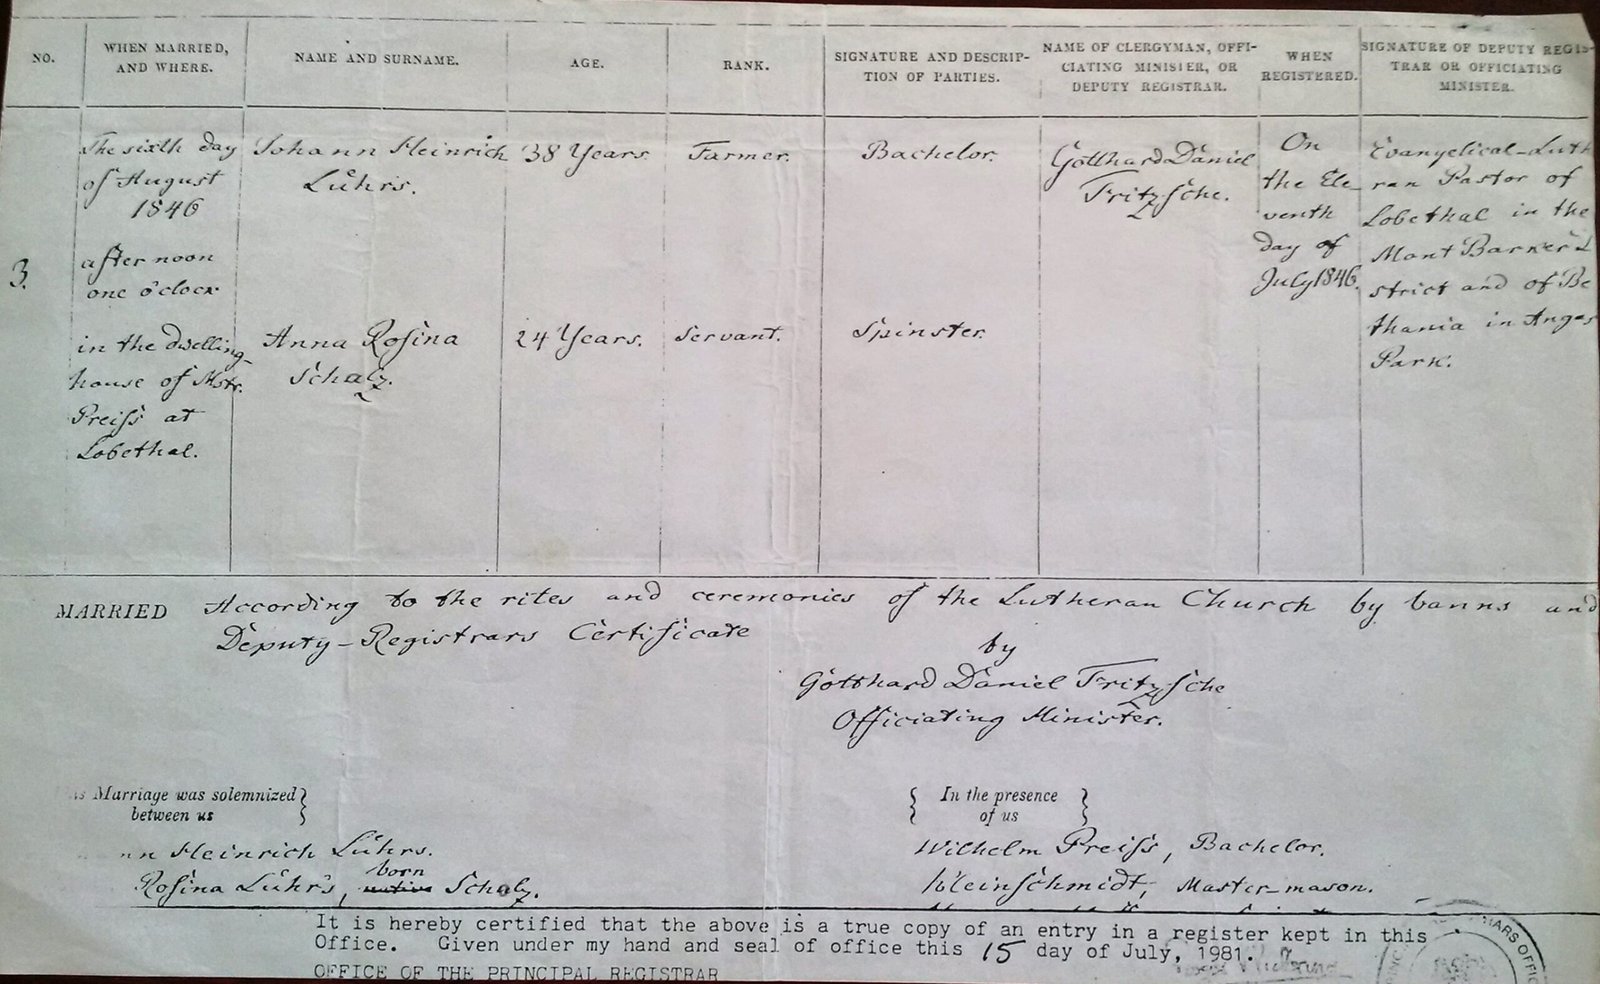 NO.
WHEN MARRIED,
AND WHERE.
NAME AND SURNAME.
AGE.
RANK.
SIGNATURE AND DESCRIP-
TION OF PARTIES.
NAME OF CLERGYMAN, OFFI-
CIATING MINISTER, OR
DEPUTY REGISTRAR.
WHEN
REGISTERED.
SIGNATURE OF DEPUTY REGIS-
TRAR OR OFFICIATING
MINISTER.
3.
The sixth day
of August
1846
after noon
one o'clock
in the dwelling-
house of Mstr.
Preiſs at
Lobethal.
Johann Heinrich
Lührs.
Anna Roſina
Schulz.
38 Years.
24 Years.
Farmer.
Servant.
Bachelor.
Spinster.
Gotthard Daniel
Fritzſche.
On
the Ele-
venth
day of
July 1846.
Evangelical-Luth
ran Pastor of
Lobethal in the
Mont Barker D
strict and of Be
thania in Angas
Park.
MARRIED According to the rites and ceremonies of the Lutheran Church by banns and
Deputy-Registrars Certificate
by
Gotthard Daniel Fritzſche
Officiating Minister.
is Marriage was solemnized
between us
nn Heinrich Lührs.
born
Roſina Lührs, Schulz.
In the presence
of us
Wilhelm Preiſs, Bachelor.
Kleinſchmidt, Master-mason.
It is hereby certified that the above is a true copy of an entry in a register kept in this
Office. Given under my hand and seal of office this 15 day of July, 1981.
OFFICE OF THE PRINCIPAL REGISTRAR